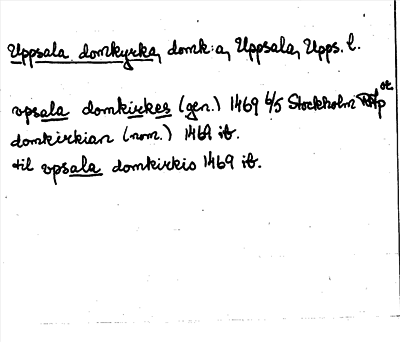 Uppsala domkyrka, domk:a, Uppsala, Upps. l.
vpsala domkirkes (gen.) 1469 4/5 Stockholm or.
domkirkian (nom.) 1469 ib.
til vpsala domkirkio 1469 ib.